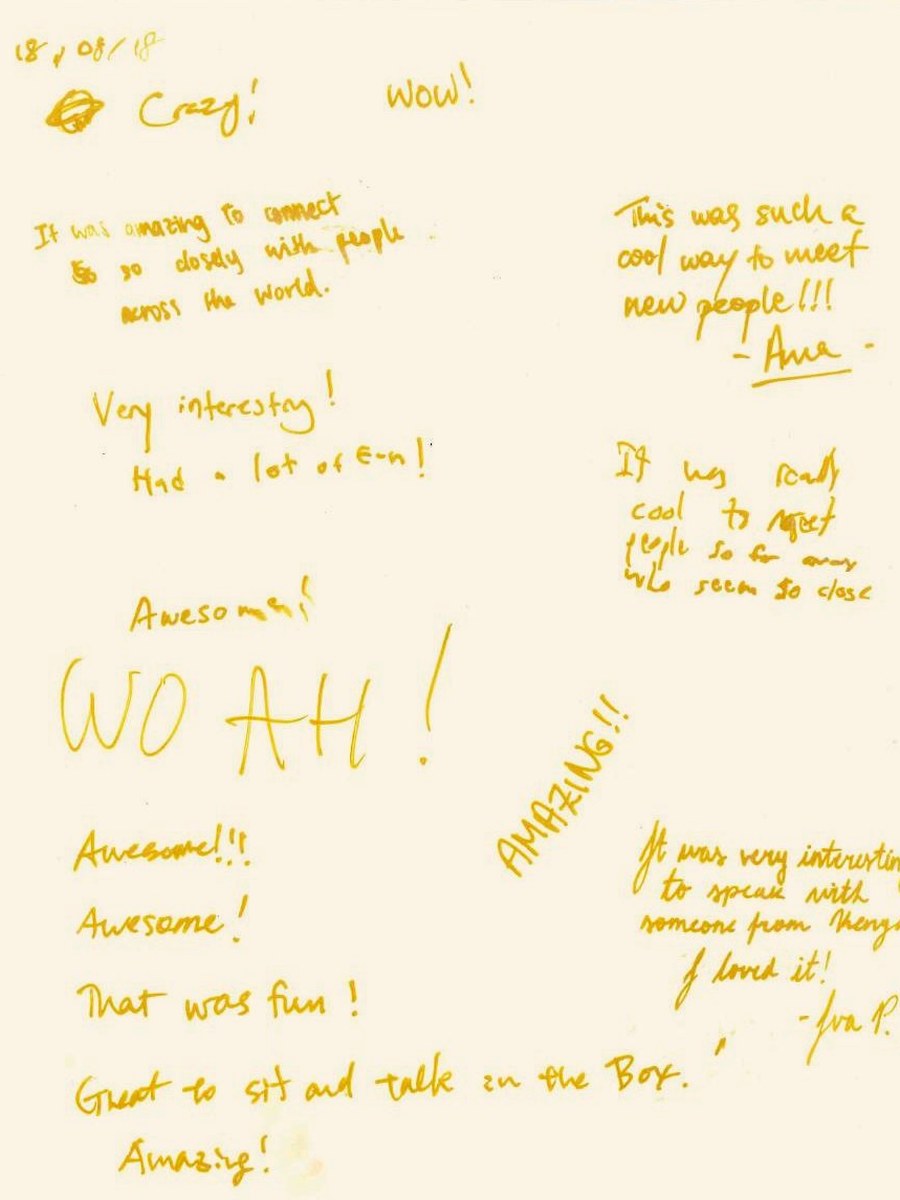 18, 08/18
Crazy!
WOW!
It was amazing to connect
so closely with people
across the world.
This was such a
cool way to meet
new people!!!
- Ana -
Very interesting!
Had a lot of
It was really
cool to meet
people so far away
who seem so close
Awesome!
WOAH!
AMAZING!!
Awesome!!!
Awesome!
That was fun!
Great to sit and talk in the Box."
Amazing!
It was very interestin
to speak with
someone from Keny
I loved it!
- Iva P.